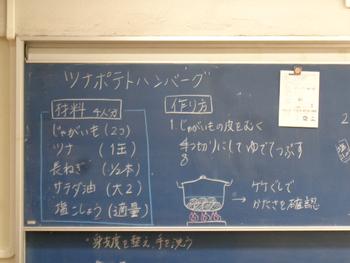 ツナポテトハンバーグ
材料 4人分
じゃがいも (2コ)
ツナ (1缶)
長ねぎ (1/2本)
サラダ油 (大2)
塩こしょう (適量)
作り方
1. じゃがいもの皮をむく
4つ切りにしてゆでてつぶす
→ 竹ぐしで
かたさを確認
・身支度を整え 手を洗う